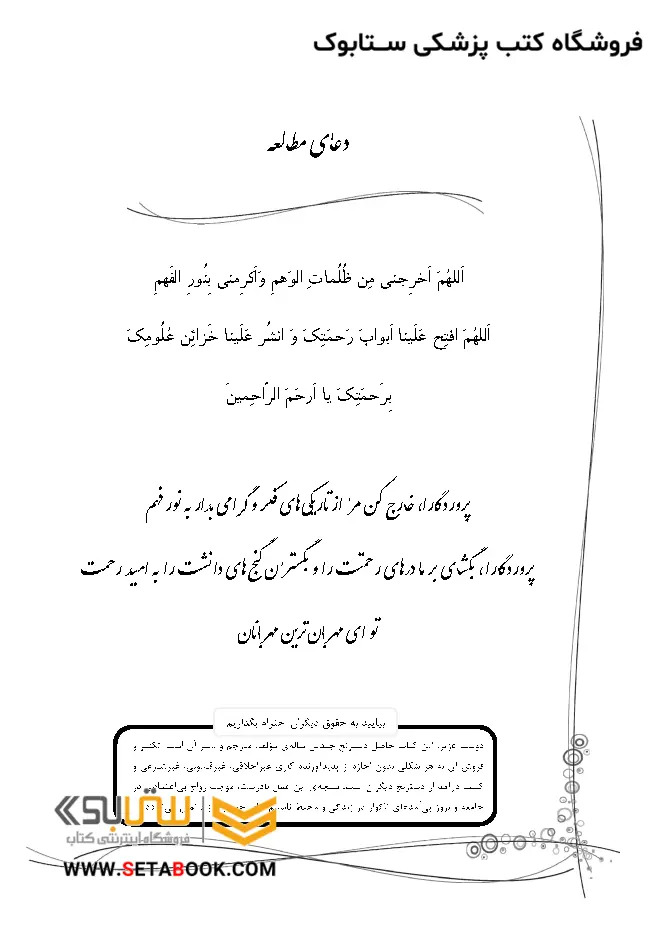 فروشگاه کتب پزشکی ستابوک
دعای مطالعه
اَللهُمَ اَخرِجنی مِن ظُلُماتِ الوَهمِ وَاَکرِمنی بِنُورِ الفَهمِ
اَللهُمَ افتِح عَلَینا اَبوابَ رَحمَتِکَ وَ انشُر عَلَینا خَزائِن عُلُومِکَ
بِرَحمَتِکَ یا اَرحَمَ الرّاحِمینَ
پروردگارا، خارج کن مرا از تاریکی‌های فکر و گرامی بدار به نور فهم
پروردگارا، بگشای بر ما درهای رحمتت را و بگستران گنج‌های دانشت را به امید رحمت
تو ای مهربان‌ترین مهربانان
بیایید به حقوق دیگران احترام بگذاریم
دوست عزیز، این کتاب حاصل دسترنج چندین ساله‌ی مؤلف، مترجم و ناشر آن است. تکثیر و
فروش آن به هر شکلی بدون اجازه از پدیدآورنده کاری غیراخلاقی، غیرقانونی، غیرشرعی و
کسب درآمد از دسترنج دیگران است. نتیجه‌ی این عمل نادرست، موجب رواج بی‌اعتمادی در
جامعه و بروز پی‌آمدهای ناگوار در زندگی و محیط
ستابوک
فروشگاه اینترنتی کتاب
WWW.SETABOOK.COM